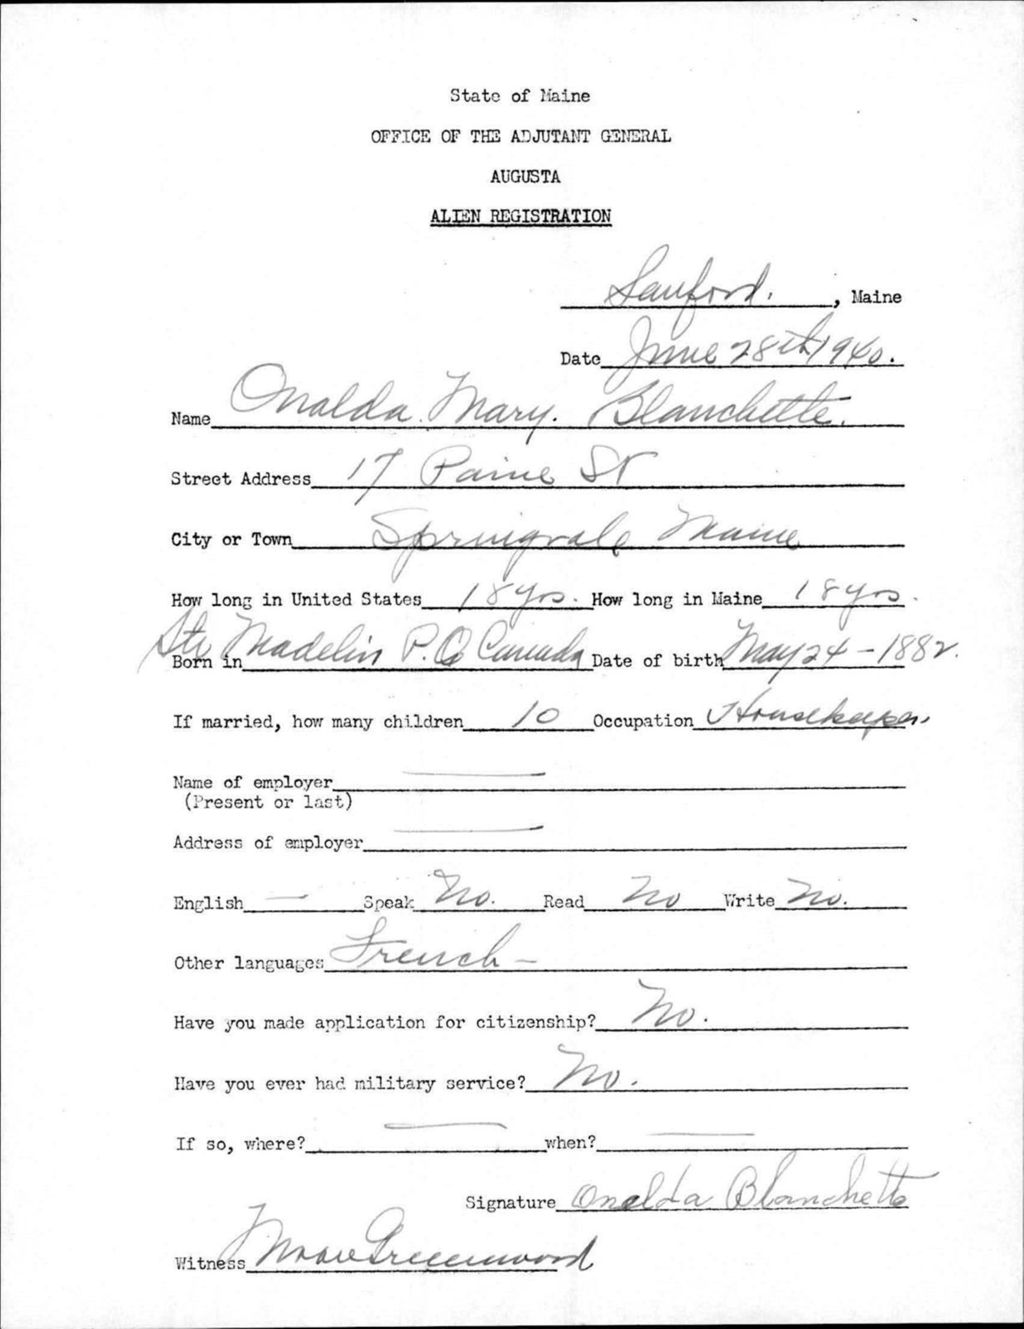 State of Maine
OFFICE OF THE ADJUTANT GENERAL
AUGUSTA
ALIEN REGISTRATION
Sanford. , Maine
Date June 28th 1940.
Name Onalda. Mary. Blanchette.
Street Address 17 Paine St
City or Town Springvale Maine
How long in United States 18 yrs. How long in Maine 18 yrs.
Born in Ste Madelin P.Q Canada Date of birth May 24 - 1882.
If married, how many children 10 Occupation Housekeeper.
Name of employer
(Present or last)
Address of employer
English — Speak No. Read No Write No.
Other languages French —
Have you made application for citizenship? No.
Have you ever had military service? No.
If so, where? — when? —
Signature Onalda Blanchette
Witness Greenwood